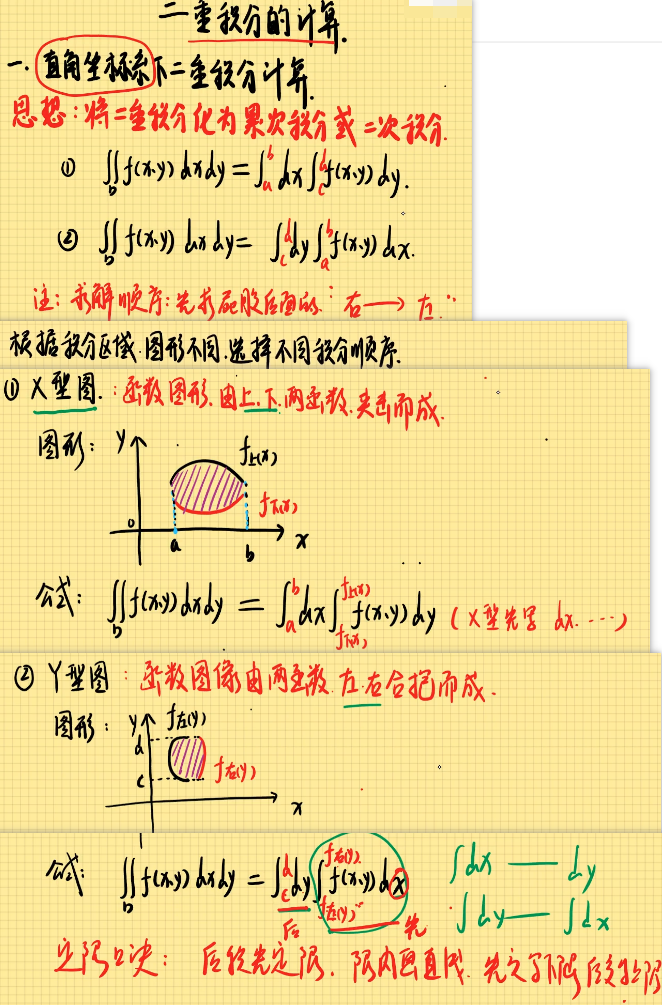 二重积分的计算.
一. 直角坐标系下二重积分计算.
思想:将二重积分化为累次积分或二次积分.
① ∬_D f(x,y) dxdy = ∫_a^b dx ∫_c^d f(x,y) dy.
② ∬_D f(x,y) dx dy = ∫_c^d dy ∫_a^b f(x,y) dx.
注: 求解顺序:先求屁股后面的. 右→左.
根据积分区域.图形不同.选择不同积分顺序.
① X型图.:函数图形.由上.下.两函数.夹击而成.
图形: y f上(x)
f下(x)
0 a b x
公式: ∬_D f(x,y) dxdy = ∫_a^b dx ∫_{f下(x)}^{f上(x)} f(x,y) dy (X型先写 dx....)
② Y型图:函数图像由两函数.左.右合抱而成.
图形: y f左(y)
d
f右(y)
c
x
公式: ∬_D f(x,y) dxdy = ∫_c^d dy ∫_{f左(y)}^{f右(y)} f(x,y) dx ∫dx — dy
后 先 ∫dy — ∫dx
定限口决: 后积先定限.限内画直线.先交写下限.后交上限